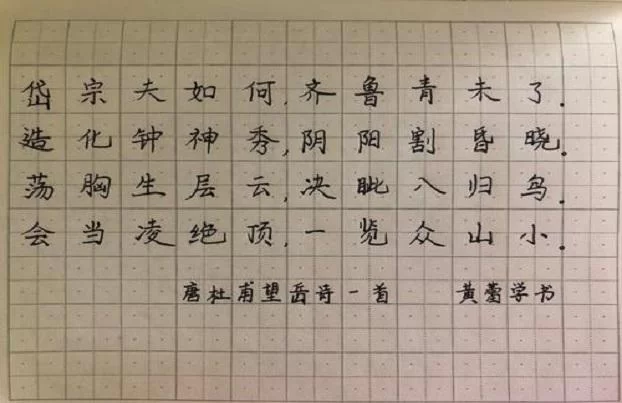 岱宗夫如何,齐鲁青未了.
造化钟神秀,阴阳割昏晓.
荡胸生层云,决眦入归鸟.
会当凌绝顶,一览众山小.
唐杜甫望岳诗一首 黄蕾学书